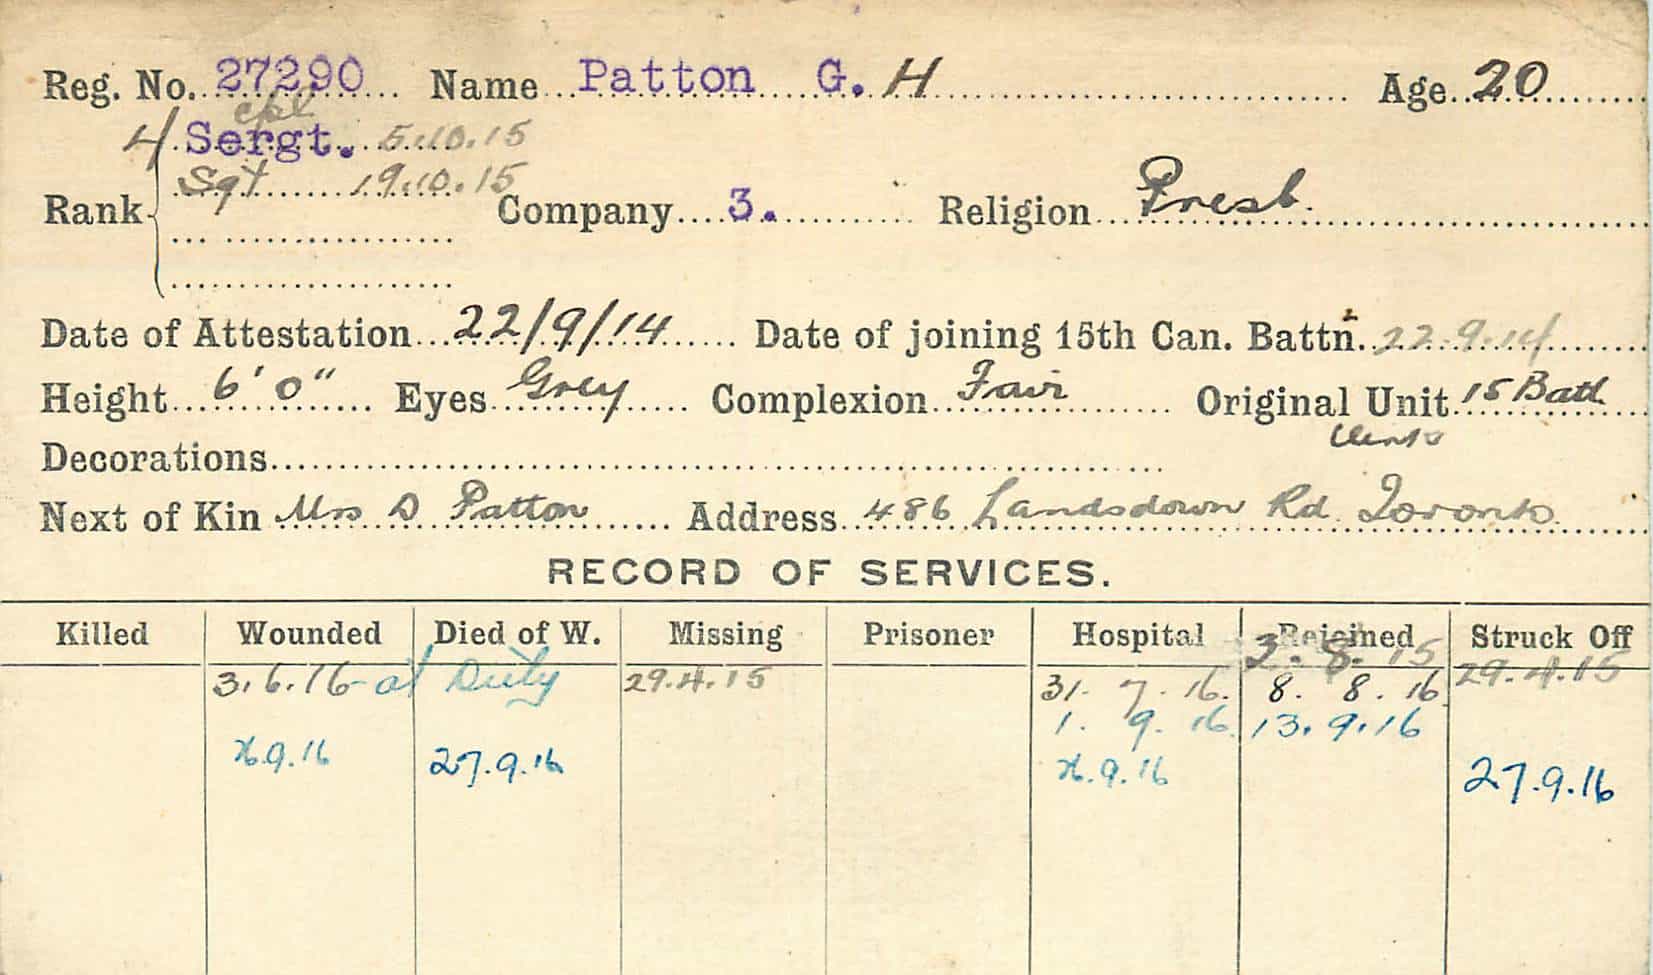 Reg. No. 27290 Name Patton G. H Age 20
cpl
4 Sergt. 5.10.15
Sgt 19.10.15
Rank Company 3. Religion Presb.
Date of Attestation 22/9/14 Date of joining 15th Can. Battn. 22.9.14
Height 6'0" Eyes Grey Complexion Fair Original Unit 15 Batt
Decorations
Next of Kin Mrs D Patton Address 486 Landsdown Rd Toronto
RECORD OF SERVICES.
Killed Wounded Died of W. Missing Prisoner Hospital Rejoined Struck Off
3.6.16 - at Duty 29.4.15 31. 7. 16. 3. 8. 15 29.4.15
8. 8. 16
1. 9. 16 13.9.16
.9.16 27.9.16 .9.16 27.9.16